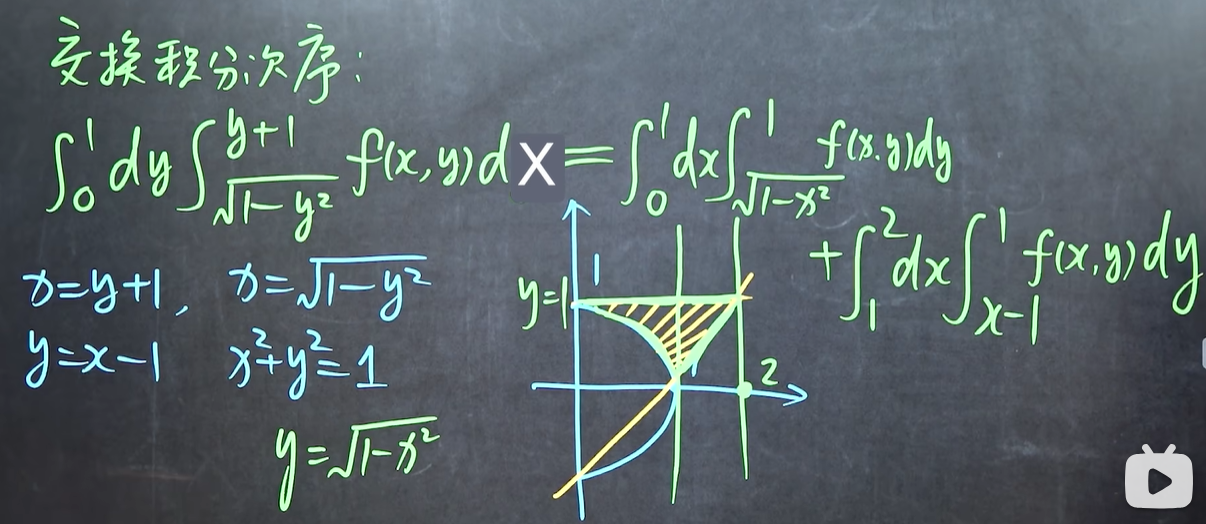 交换积分次序:
∫₀¹ dy ∫_{√(1-y²)}^{y+1} f(x,y)d x = ∫₀¹ dx ∫_{√(1-x²)}^{1} f(x,y)dy
+ ∫₁² dx ∫_{x-1}^{1} f(x,y)dy
x=y+1, x=√(1-y²)
y=x-1 x²+y²=1
y=√(1-x²)
y=1
1
1
2